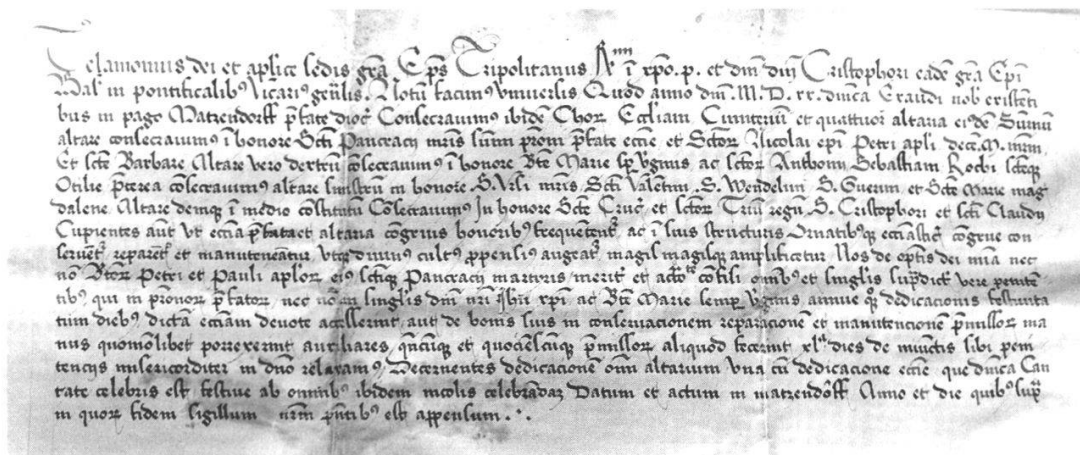 Telamonius dei et aplice sedis grã Ep̃s Tripolitanus Rmi ĩ xpo. p. et dñi dñi Cristophori eadẽ grã Epi
Basl in pontificalibꝰ Vicariꝰ gñlis. Notũ facimꝰ vniuersis Quod anno dñi. M. D. xx. dñica Exaudi nob̾ existenti
bus in pago Matzendorff p̃fate dioc̾ Consecrauimꝰ ibidẽ Chor Ecctiam Cimiteriũ et quattuor altaria ei dẽ Sũmũ
altare consecrauimꝰ ĩ honore Scti Pancracij mr̃is sum̃i pr̃oni p̃fate eccie et Sctor Nicolai epi Petri apli decẽ. M. mr̃m
Et scte Barbare Altare vero dextrũ cõsecrauimꝰ ĩ honore Bte Marie sp̱ vgĩnis ac sctor Anthonij Sebastiani Rochi scteq̃
Otilie p̃terea cõsecrauimꝰ altare sinistrũ in honore. S. Vrsi mr̃is Scti Valẽtini. S. Wendelini S. Guerini et Scte Marie mag
dalene Altare demiq̃ ĩ medio cõstitutũ Consecrauimꝰ In honore Scte Cruc̾ et sctor Triũ regũ S. Cristophori et scti Claudij
Cupientes aũt vt eccia p̃fata et altaria cõgruis honoribꝰ frequẽtent̾ ac ĩ suis structuris Ornatibꝰq̃ ecciastic̾ cõgrue con
seruẽt̾ reparẽt̾ et manuteneãtur vtq̃ diuinus cultꝰ p̱pensiꝰ augeat̾ magis magisq̃ amplificetur Nos de op̃tis dei mĩa nec
nõ Btor Petri et Pauli aplor eiꝰ scteq̃ Pancracij martiris merit̾ et aucte cõfisi om̃ibꝰ et singlis sup̱dict̾ vere penitẽ
tibꝰ qui in pr̃onor p̃fator nec nõ in singlis dñi nr̃i Ihũ xpi ac Bte Marie semp̱ vgĩnis annue q̃ʒ dedicacionis festiuita
tum diebꝰ dictã ecciam deuote accesserint aut de bonis suis in conseruacionem reparacionẽ et manutencionẽ p̃missor ma
nus quomõlibet porrexerint auxiliares qñcũq̃ et quociẽscũq̃ p̃missor aliquod fecerint xl dies de iniũctis sibi peni
tencijs misericorditer in dño relaxamꝰ Decernentes dedicacionẽ oñi altarium vna cũ dedicacione eccie que dñica Can
tate celebris est festiue ab omnibꝰ ibidem incolis celebrãdaʒ Datum et actum in matzendorff Anno et die quibꝰ sup̱
in quorʒ fidem sigillum nr̃m p̃ntibꝰ est appensum ∴